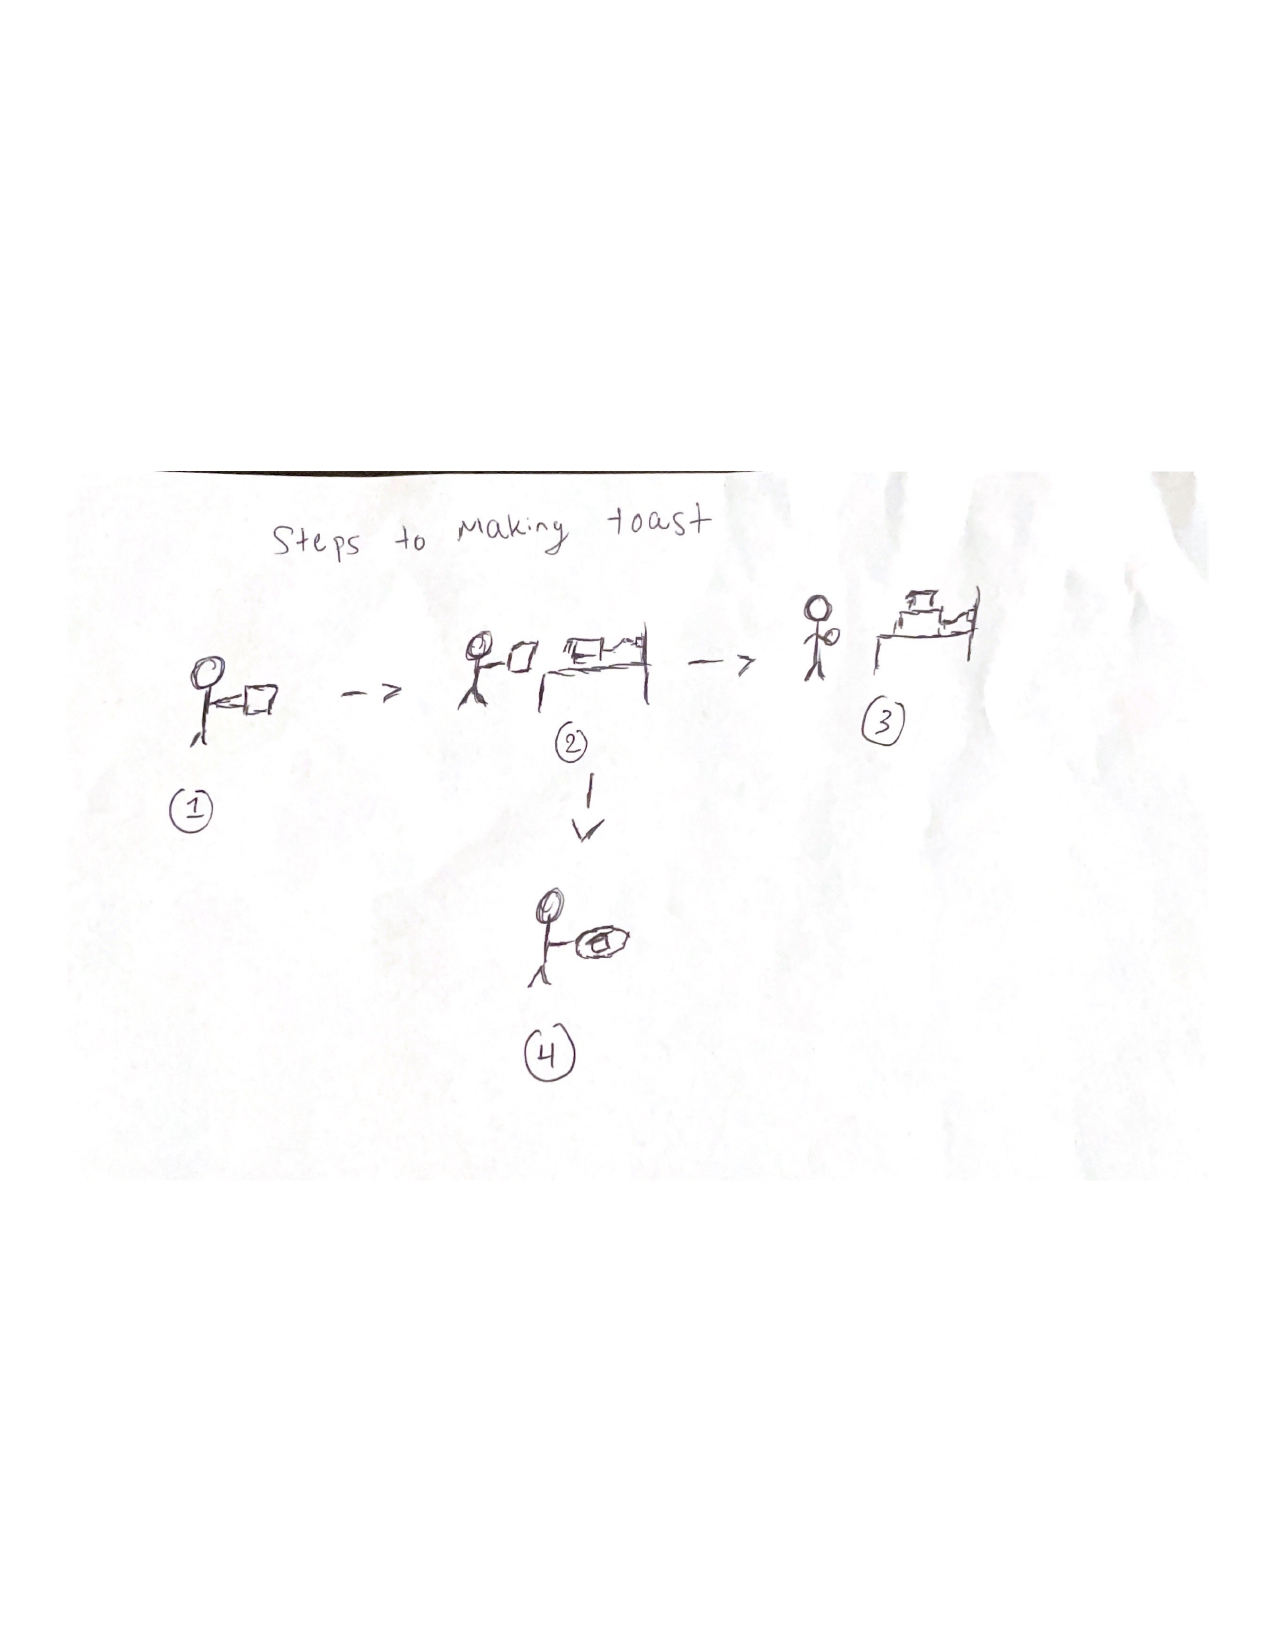 Steps to Making toast
1
2
3
4